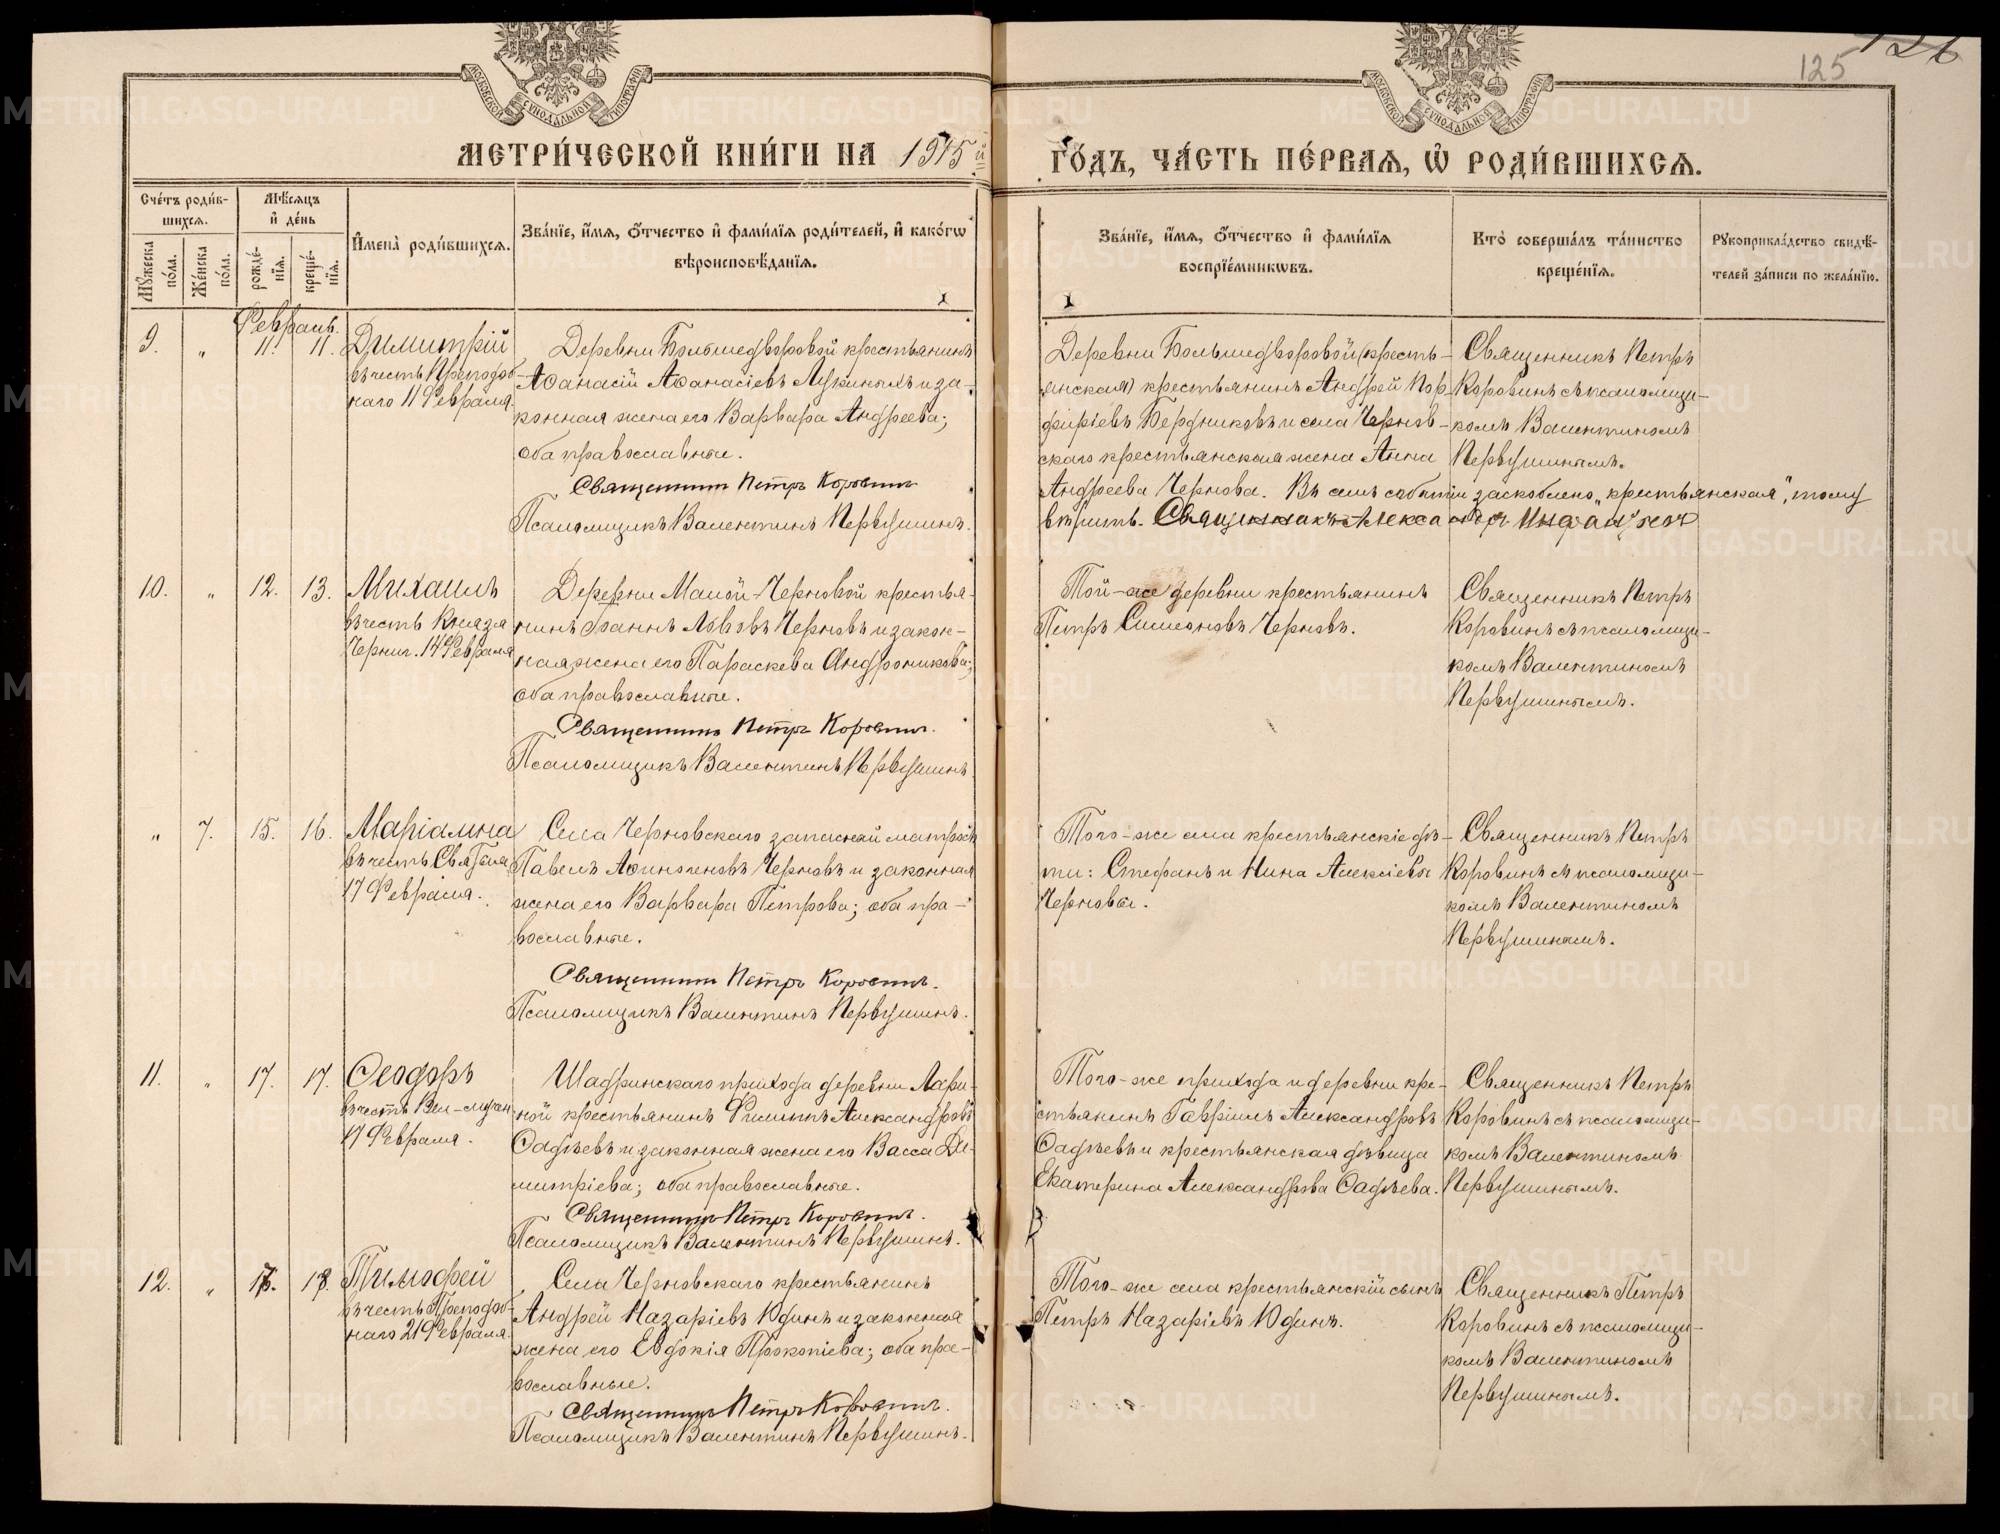 125
МЕТРИ́ЧЕСКОЙ КНИ́ГИ НА 1915й ГО́ДЪ, ЧА́СТЬ ПЕ́РВАЯ, Ѿ РОДИ́ВШИХСЯ.
Сче́тъ роди́в-
шихся.
Мꙋ́жеска по́ла.
Же́нска по́ла.
Мѣ́сяцъ
и҆ де́нь
рожде́-
нїя.
креще́-
нїя.
И҆мена̀ роди́вшихся.
Зва́нїе, и҆́мя, ѻ҆́тчество и҆ фами́лїя роди́телей, и҆ како́гѡ
вѣроисповѣ́данїя.
Зва́нїе, и҆́мя, ѻ҆́тчество и҆ фами́лїя
воспрїе́мникѡвъ.
Кто̀ соверша́лъ та́инство
креще́нїя.
Рꙋкоприкла́дство свидѣ́-
телей за́писи по жела́нїю.
Февраль.
9. „ 11. 11. Димитрій
въ честь Преподоб-
наго 11 Февраля.
Деревни Большедворовой крестьянинъ
Аѳанасій Аѳанасіевъ Лукиныхъ и за-
конная жена его Варвара Андреева;
оба православные.
Священникъ Петръ Коровинъ
Псаломщикъ Валентинъ Первушинъ.
Деревни Большедворовой (кресть-
янская) крестьянинъ Андрей Пор-
фиріевъ Бердниковъ и села Чернов-
скаго крестьянская жена Анна
Андреева Чернова. Въ семъ событіи заскоблено „крестьянская“, тому
вѣрить. Священникъ Александръ
Священникъ Петръ
Коровинъ съ псаломщи-
комъ Валентиномъ
Первушинымъ.
10. „ 12. 13. Михаилъ
въ честь Князя
Черниг. 14 Февраля
Деревни Малой-Черновой крестья-
нинъ Іоаннъ Львовъ Черновъ и закон-
ная жена его Параскева Андроникова;
оба православные.
Священникъ Петръ Коровинъ.
Псаломщикъ Валентинъ Первушинъ
Той-же деревни крестьянинъ
Петръ Симеоновъ Черновъ.
Священникъ Петръ
Коровинъ съ псаломщи-
комъ Валентиномъ
Первушинымъ.
„ 7. 15. 16. Маріамна
въ честь Свят.
17 Февраля.
Села Черновскаго запасной матросъ
Павелъ Аѳиногеновъ Черновъ и законная
жена его Варвара Петрова; оба пра-
вославные.
Священникъ Петръ Коровинъ.
Псаломщикъ Валентинъ Первушинъ.
Того-же села крестьянскіе дѣ-
ти: Стефанъ и Нина Алексіевы
Черновы.
Священникъ Петръ
Коровинъ съ псаломщи-
комъ Валентиномъ
Первушинымъ.
11. „ 17. 17. Ѳеодоръ
въ честь Вел-мучен.
17 Февраля.
Шадринскаго прихода деревни Лари-
ной крестьянинъ Филиппъ Александровъ
Фадѣевъ и законная жена его Васса Ди-
митріева; оба православные.
Священникъ Петръ Коровинъ.
Псаломщикъ Валентинъ Первушинъ.
Того-же прихода и деревни кре-
стьянинъ Гавріилъ Александровъ
Фадѣевъ и крестьянская дѣвица
Екатерина Александрова Фадѣева.
Священникъ Петръ
Коровинъ съ псаломщи-
комъ Валентиномъ
Первушинымъ.
12. „ 17. 18. Тимофей
въ честь Преподоб-
наго 21 Февраля.
Села Черновскаго крестьянинъ
Андрей Назаріевъ Юдинъ и законная
жена его Евдокія Прокопіева; оба пра-
вославные.
Священникъ Петръ Коровинъ.
Псаломщикъ Валентинъ Первушинъ.
Того-же села крестьянскій сынъ
Петръ Назаріевъ Юдинъ.
Священникъ Петръ
Коровинъ съ псаломщи-
комъ Валентиномъ
Первушинымъ.